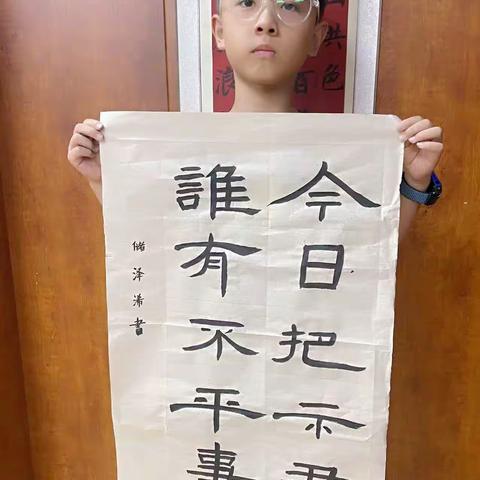 今日把示君
誰有不平事
储泽書
共色
百
浪